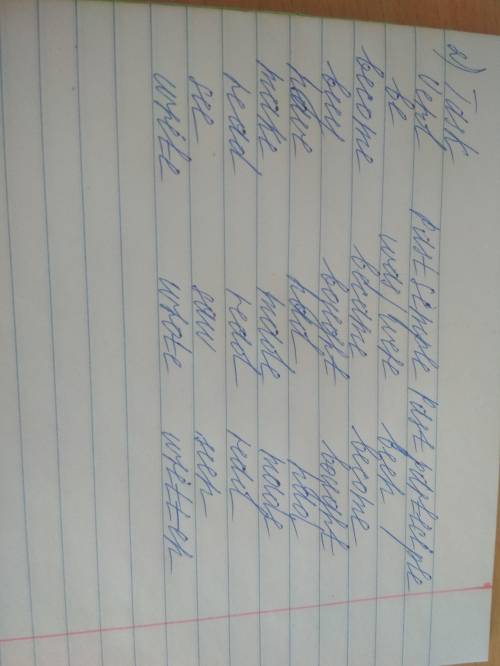 2) Task
Verb Past simple Past participle
be was/were been
become became become
buy bought bought
have had had
make made made
read read read
see saw seen
write wrote written